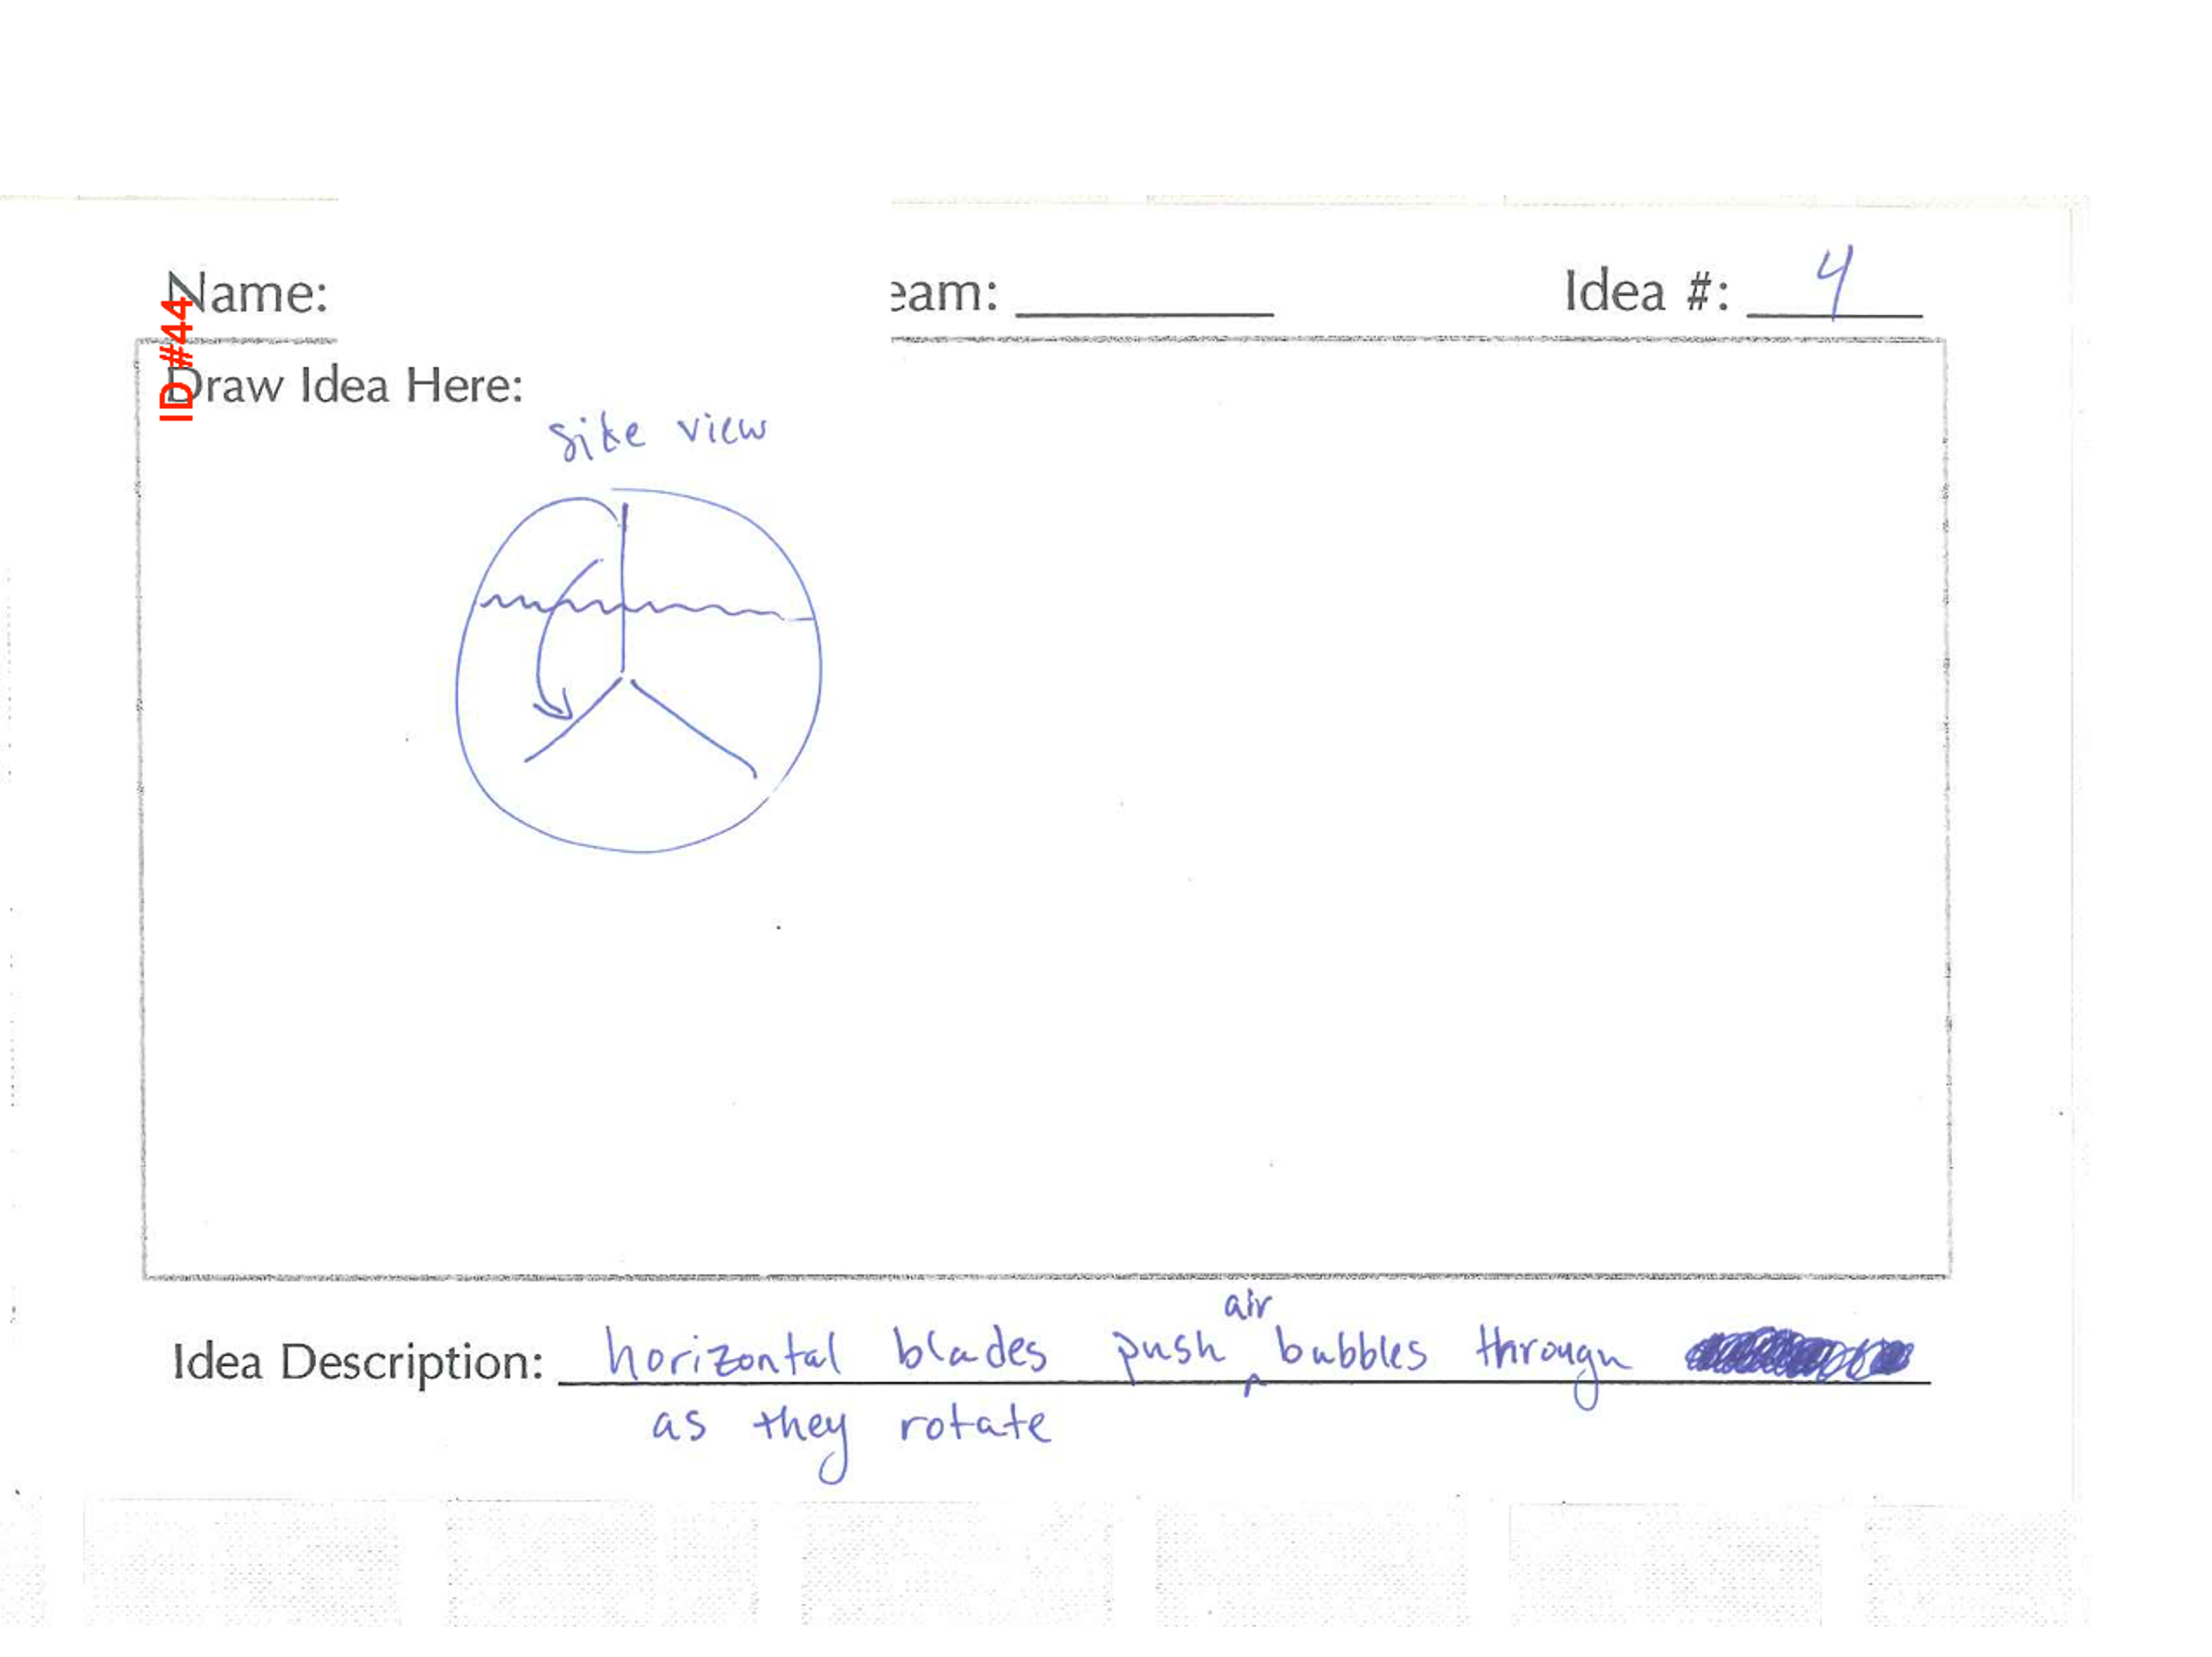 Name: eam: Idea #: 4
ID#44
Draw Idea Here:
side view
air
Idea Description: horizontal blades push bubbles through
as they rotate